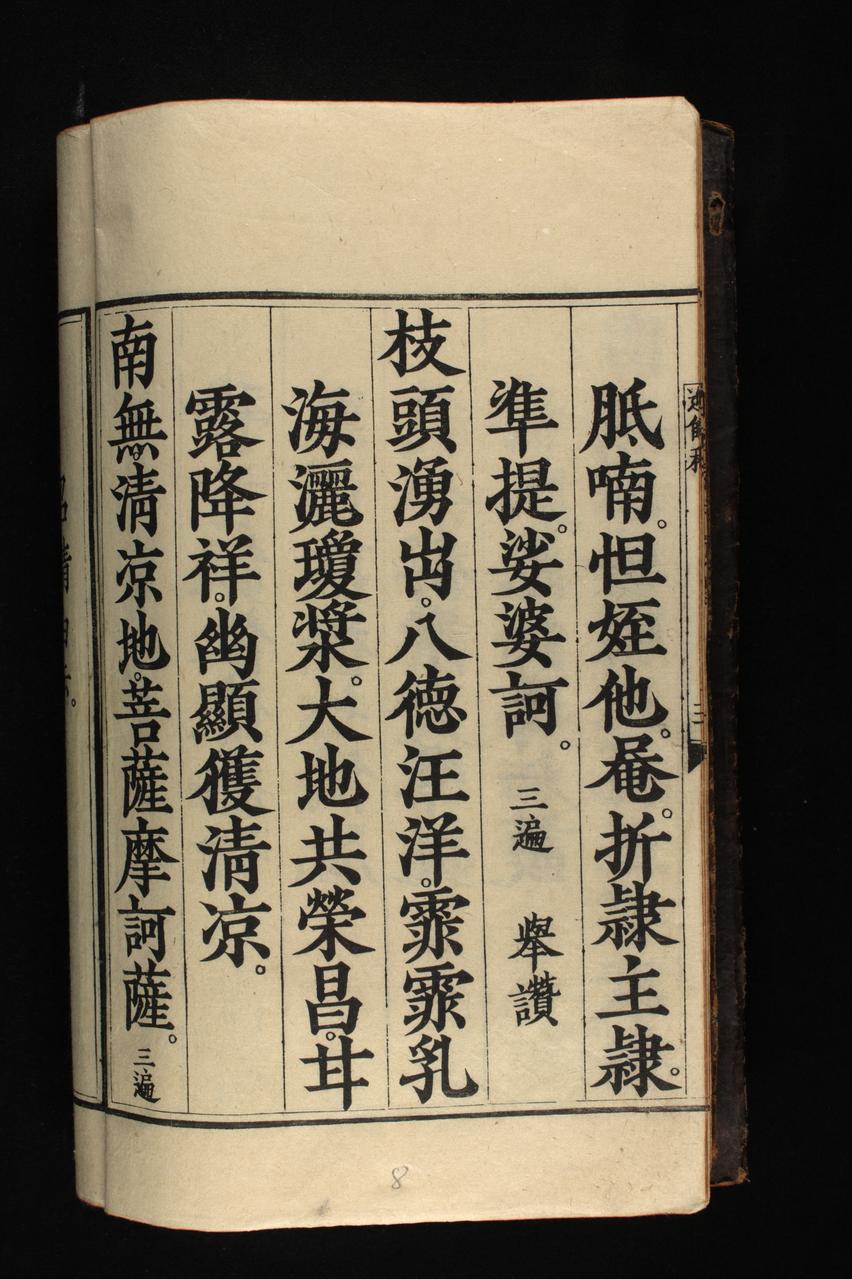 胝喃。怛姪他。唵。折隸主隸。
準提。娑婆訶。三遍 舉讚
枝頭湧出。八德汪洋。霏霏乳
海灑瓊漿。大地共榮昌。甘
露降祥。幽顯獲清凉。
南無清凉地。菩薩摩訶薩。三遍